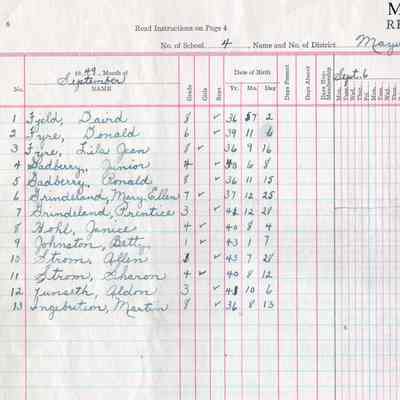 6
Read Instructions on Page 4
M
RE
No. of School. 4 , Name and No. of District. Mayv
1949, Month of
September
NAME
No.
Grade
Girls
Boys
Date of Birth
Yr. Mo. Day
Days Present
Days Absent
Days Reg. Membership
Sept. 6
Mon. Tues. Wed. Thur. Fri. Mon. Tues. Wed. Thur.
1 Fjeld, David 8 ✓ 36 7 2
2 Fyre, Donald 6 ✓ 39 11 6
3 Fyre, Lila Jean 8 ✓ 36 9 16
4 Gadberry, Junior 4 ✓ 40 6 8
5 Gadberry, Ronald 8 ✓ 36 11 15
6 Grindeland, Mary Ellen 7 ✓ 37 12 25
7 Grindeland, Prentice 3 ✓ 41 12 28
8 Hohl, Janice 4 ✓ 40 8 4
9 Johnston, Betty 1 ✓ 43 1 7
10 Strom, Allen ✓ 43 7 28
11 Strom, Sharon 4 ✓ 40 8 12
12 Tunseth, Aldon 3 ✓ 41 10 6
13 Ingebretson, Martin 8 ✓ 36 8 13